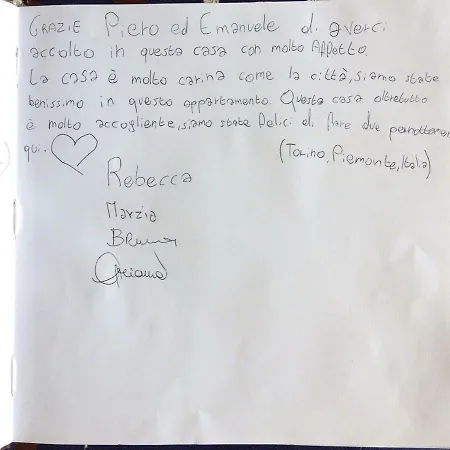 GRAZIE Piero ed Emanuele di averci
accolto in questa casa con molto Affetto.
La casa è molto carina come la città, siamo state
benissimo in questo appartamento. Questa casa oltretutto
è molto accogliente, siamo state felici di fare due
qui.
(Torino, Piemonte, Italia)
Rebecca
Marzia